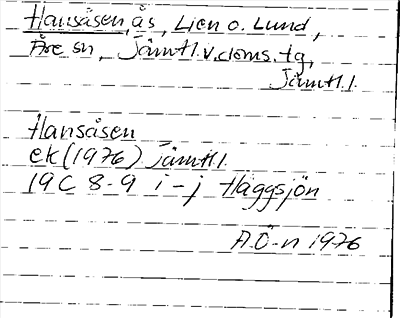 Hansåsen, ås, Lien o. Lund,
Åre sn, Jämtl.v.doms.tg,
Jämtl.l.
Hansåsen
ek (1976) Jämtl.l.
19C 8-9 i-j Häggsjön
A.Ö-n 1976